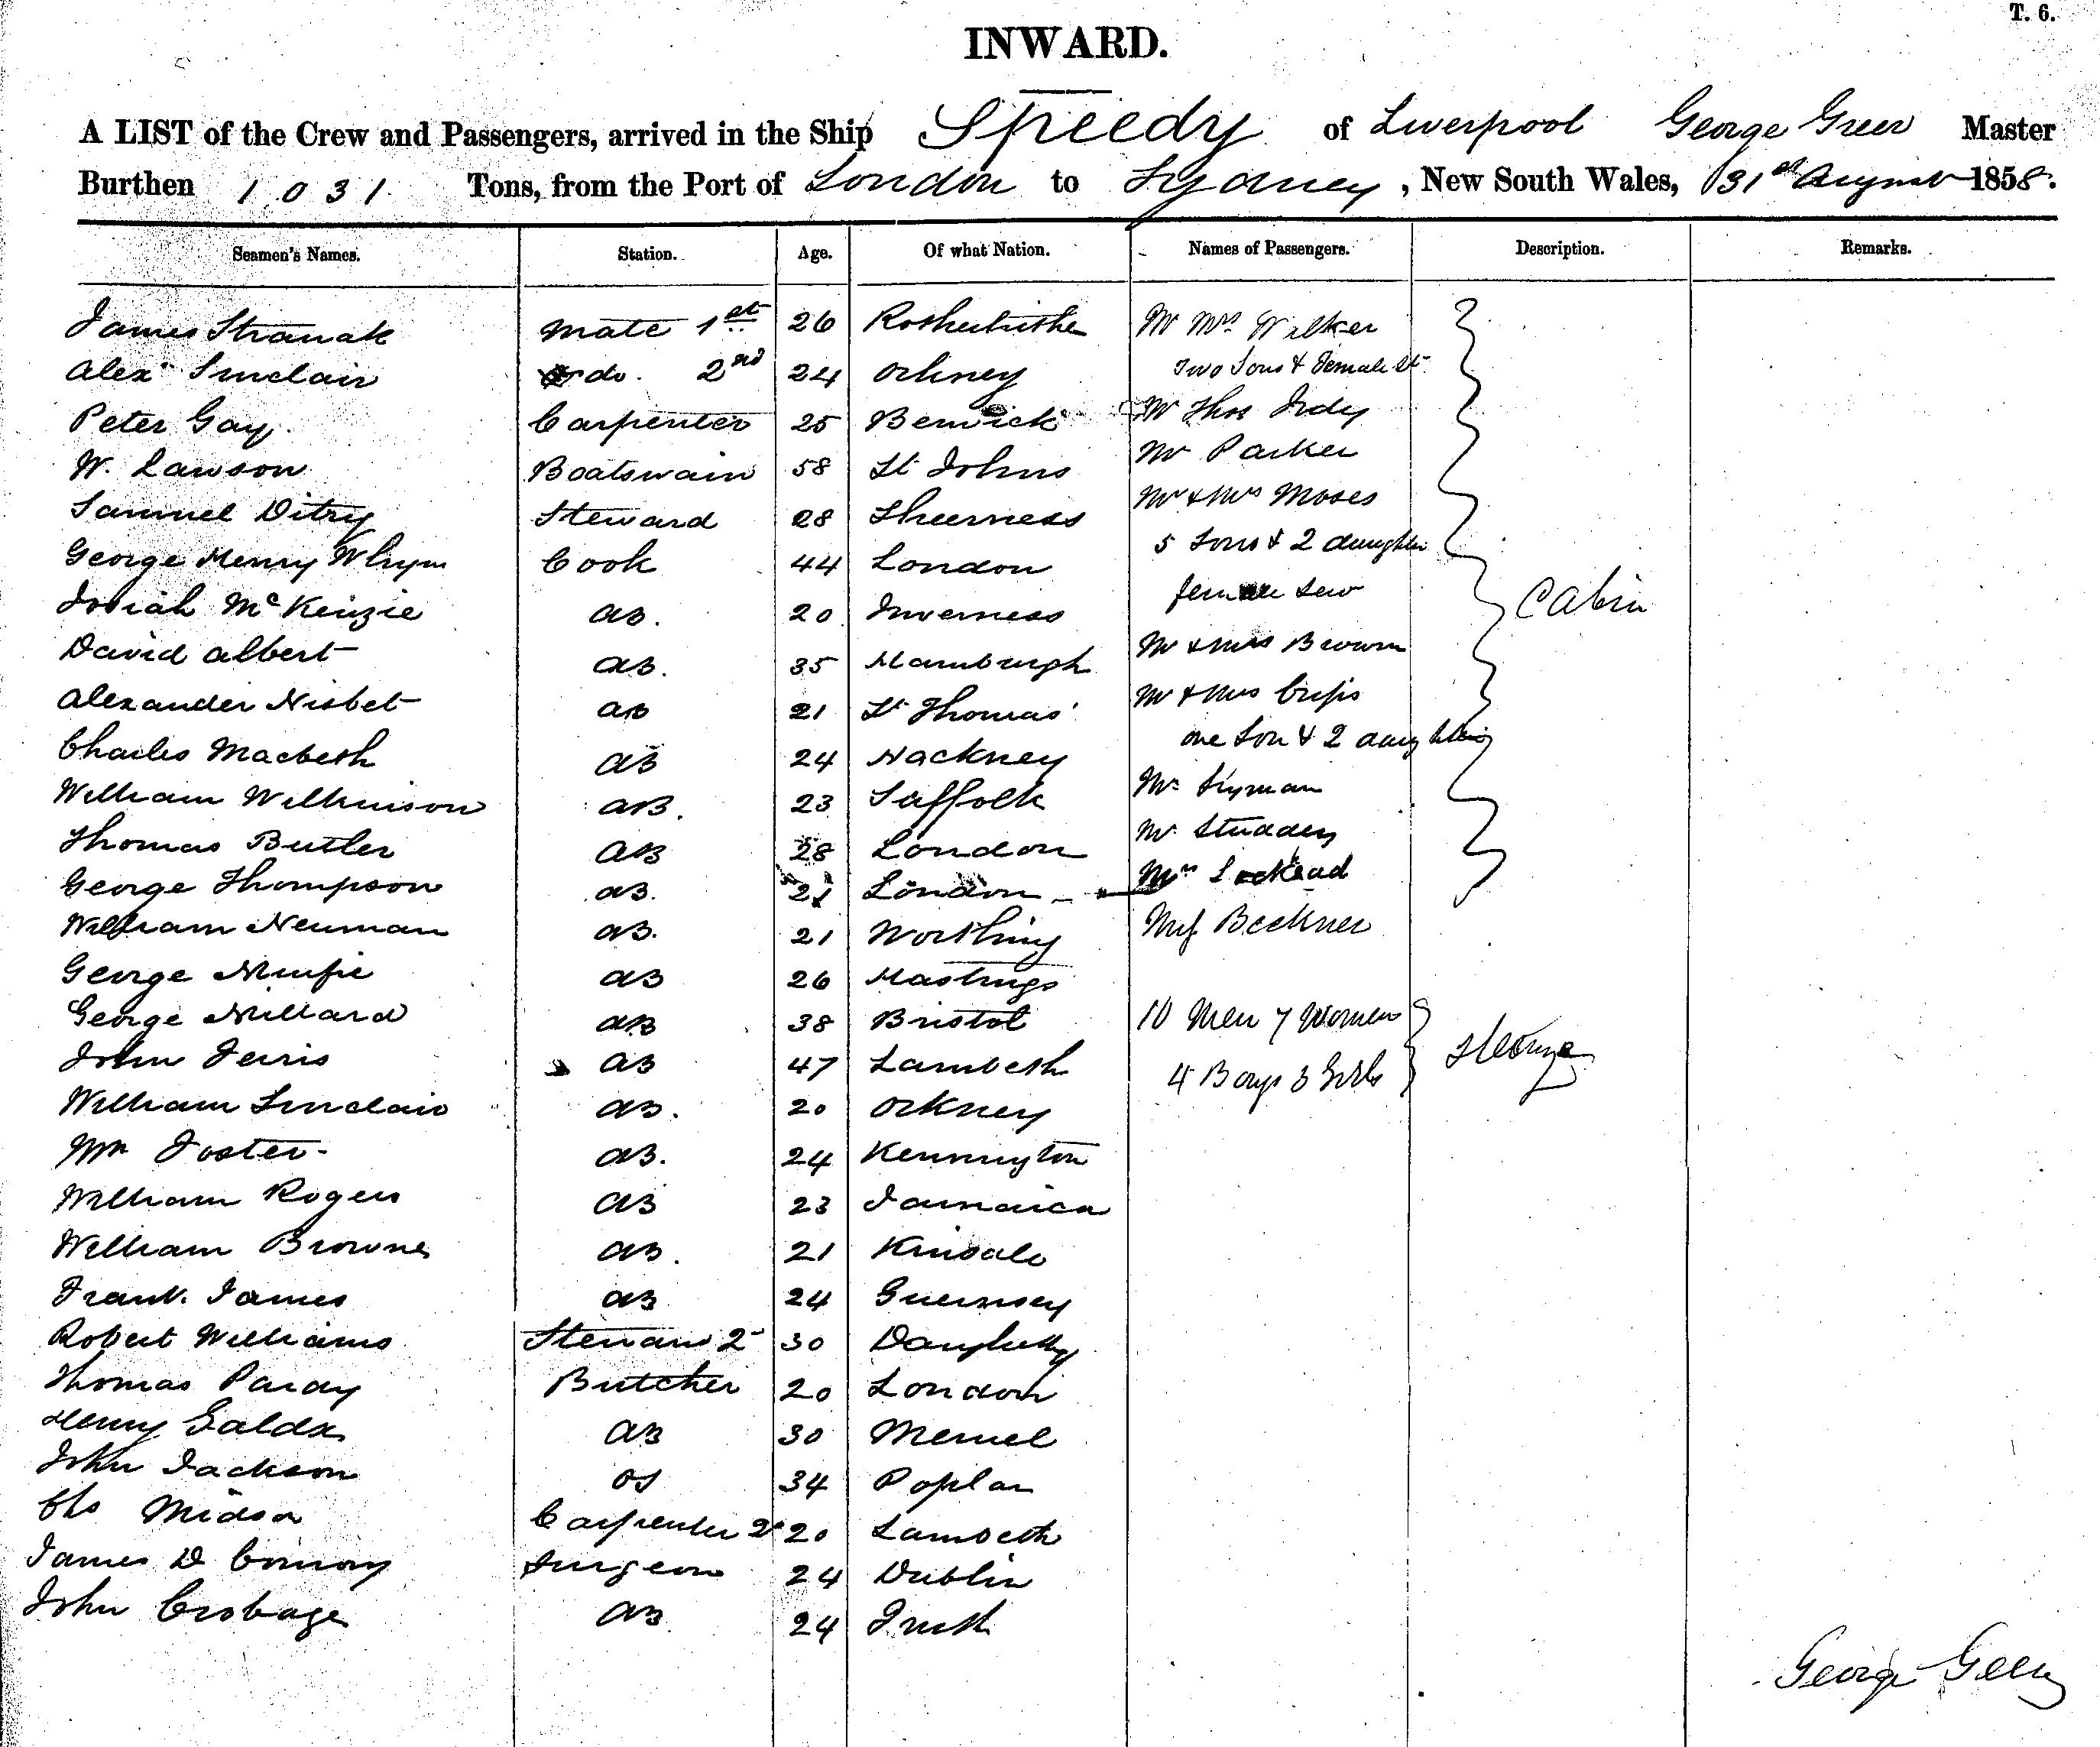 T. 6.
INWARD.
A LIST of the Crew and Passengers, arrived in the Ship Speedy of Liverpool George Greer Master
Burthen 1031 Tons, from the Port of London to Sydney, New South Wales, 31st August 1858.
Seamen's Names. Station. Age. Of what Nation. Names of Passengers. Description. Remarks.
James Stranak Mate 1st 26 Mr Mrs Walker
Alexr Sinclair do. 2nd 24 Orkney Two Sons & Female St
Peter Gay Carpenter 25 Berwick Mr Thos
W. Lawson Boatswain 58 St Johns Mr Parker
Samuel Ditry Steward 28 Sheerness Mr & Mrs Moses
George Henry Steward Cook 44 London 5 Sons & 2 daughters
Josiah McKenzie AB. 20 Inverness female Cabin
David Albert AB. 35 Hamburgh Mr & Mrs Brown
Alexander Nisbet AB 21 St Thomas Mr & Mrs Crisp
Charles Macbeth AB 24 Hackney one Son & 2 daughters
William Wilkinson AB. 23 Suffolk Mr
Thomas Butler AB 28 London Mr Studdey
George Thompson AB. 21 London
William Neuman AB. 21 Worthing Beckner
George AB 26 Hastings
George Millard AB 38 Bristol 10 Men 7 Women
John Ferris AB 47 Lambeth 4 Boys 3 Girls Steerage
William Sinclair AB. 20 Orkney
Wm Foster AB. 24 Kennington
William Rogers AB 23 Jamaica
William Browne AB. 21 Kinsale
Frank James AB 24 Guernsey
Robert Williams Steward 2 30
Thomas Pardy Butcher 20 London
Henry AB 30 Memel
John Jackson OS 34 Poplar
Chs Carpenter 2d 20 Lambeth
James D Surgeon 24 Dublin
John Crobage AB 24
George